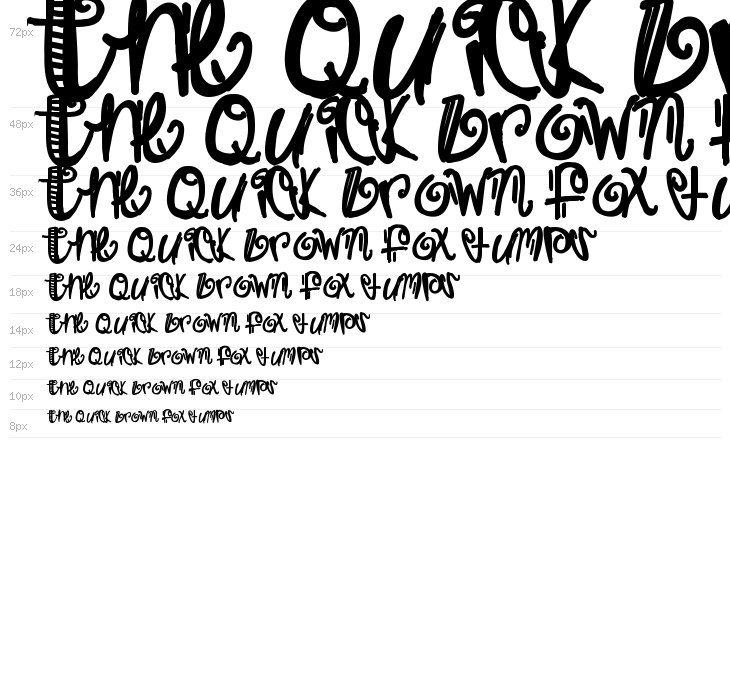 72px the Quick br
48px the Quick brown f
36px the Quick brown fox ju
24px the Quick brown fox jumps
18px the Quick brown fox jumps
14px the Quick brown fox jumps
12px the Quick brown fox jumps
10px the Quick brown fox jumps
8px the Quick brown fox jumps